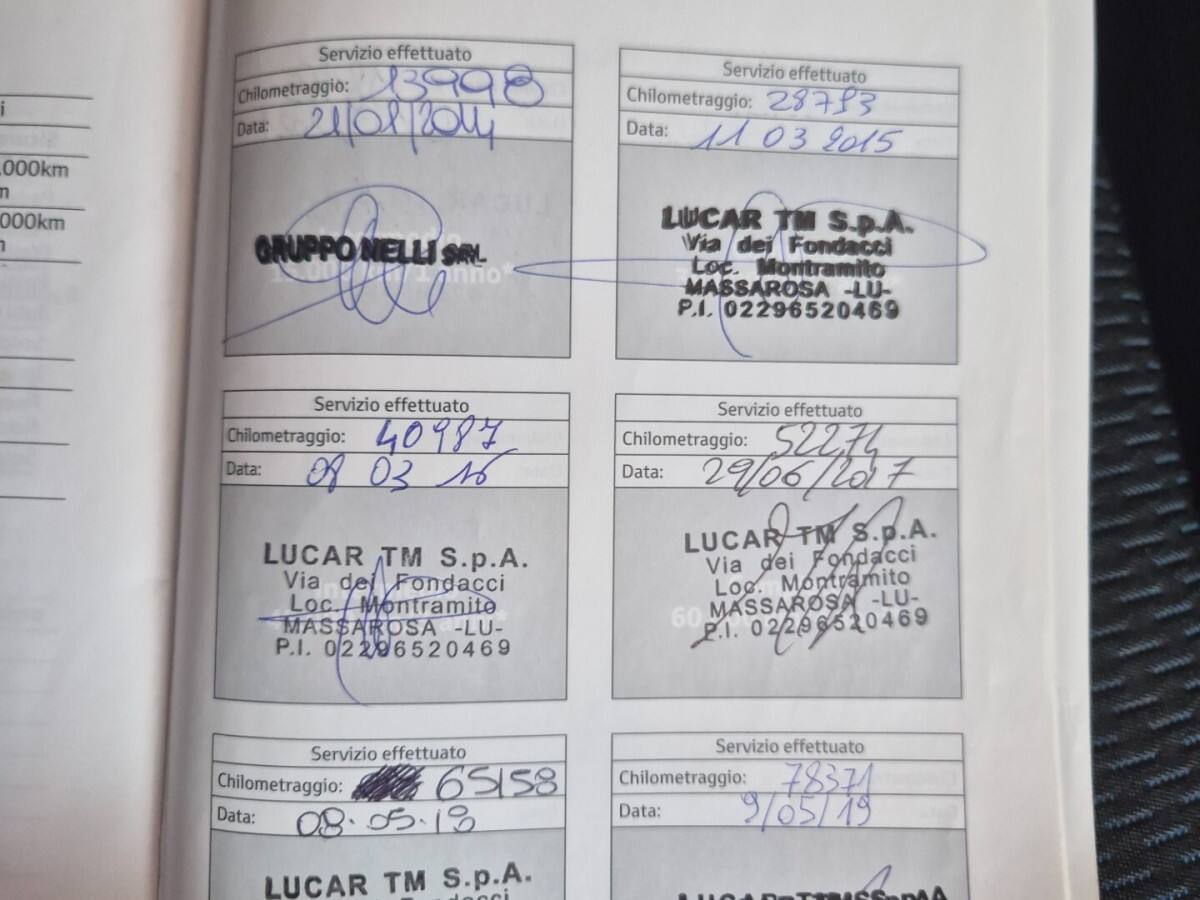 i
.000km
m
000km
m
Servizio effettuato
Chilometraggio: 13998
Data: 21/01/2014
GRUPPO NELLI SRL
15.000 km/1 anno*
Servizio effettuato
Chilometraggio: 28793
Data: 11 03 2015
LUCAR TM S.p.A.
Via dei Fondacci
Loc. Montramito
MASSAROSA -LU-
P.I. 02296520469
Servizio effettuato
Chilometraggio: 40987
Data: 08 03 16
LUCAR TM S.p.A.
Via dei Fondacci
Loc. Montramito
MASSAROSA -LU-
P.I. 02296520469
Servizio effettuato
Chilometraggio: 52274
Data: 29/06/2017
LUCAR TM S.p.A.
Via dei Fondacci
Loc. Montramito
MASSAROSA -LU-
P.I. 02296520469
Servizio effettuato
Chilometraggio: 65158
Data: 08.05.18
LUCAR TM S.p.A.
Servizio effettuato
Chilometraggio: 78371
Data: 9/05/19